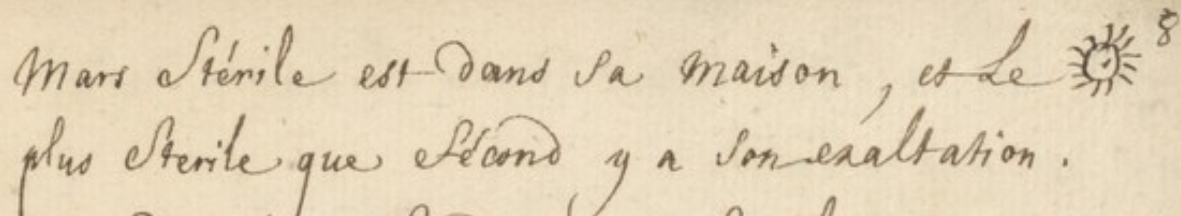 Mars Stérile est dans sa maison, et Le ☉ 8
plus Sterile que fécond y a son exaltation.